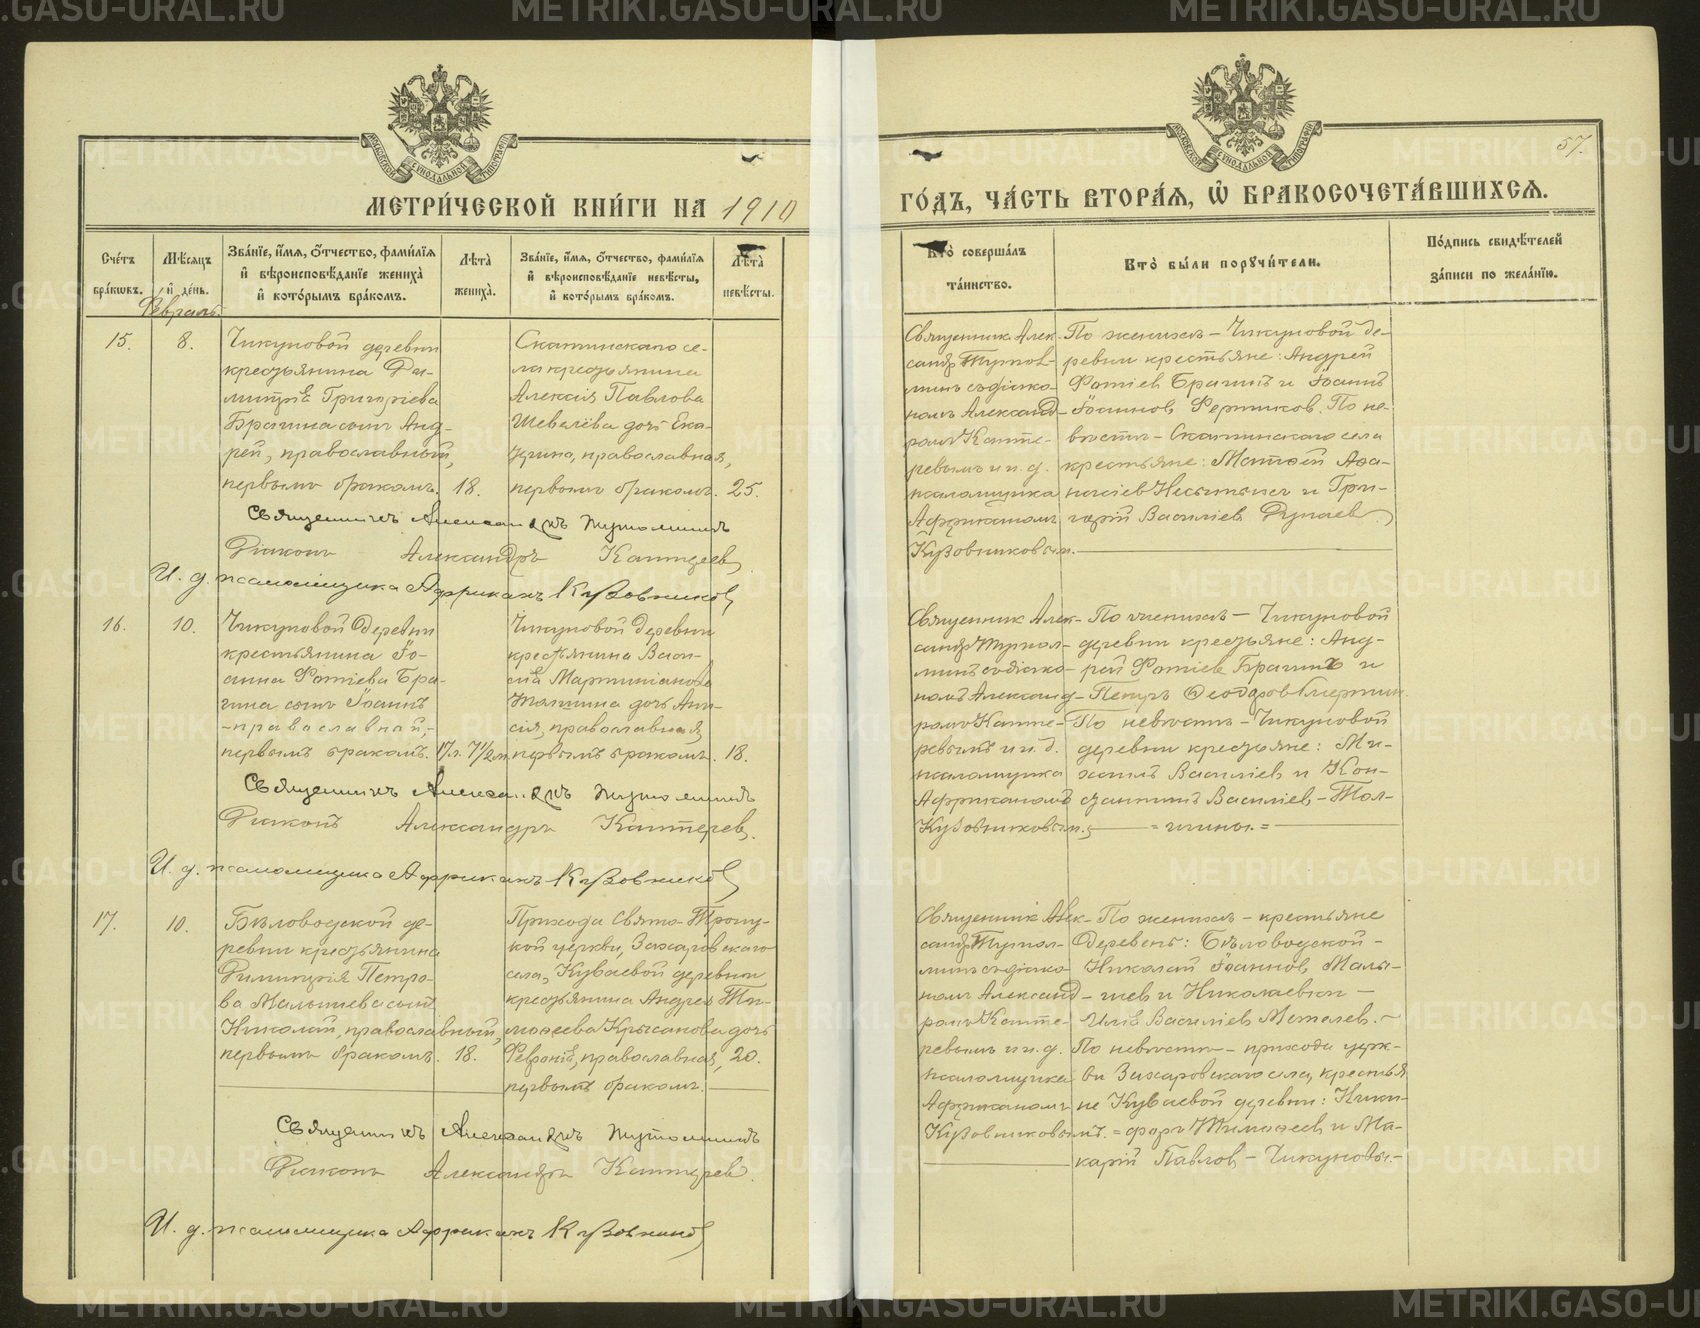 57.
МЕТРИ́ЧЕСКОЙ КНИ́ГИ НА 1910
ГО́ДЪ, ЧА́СТЬ ВТОРА́Я, Ѽ БРАКОСОЧЕТА́ВШИХСЯ.
Сче́тъ бра́кѡвъ.
Мѣ́сяцъ и҆ де́нь.
Зва́нїе, и҆́мя, ѻ҆́тчество, фами́лїя и҆ вѣроисповѣ́данїе жениха̀ и҆ кото́рымъ бра́комъ.
Лѣ́та жениха̀.
Зва́нїе, и҆́мя, ѻ҆́тчество, фами́лїя и҆ вѣроисповѣ́данїе невѣ́сты, и҆ кото́рымъ бра́комъ.
Лѣ́та невѣ́сты.
Кто̀ соверша́лъ та́инство.
Кто̀ бы́ли порꙋчи́тели.
По́дпись свидѣ́телей за́писи по жела́нїю.
Февраль.
15.
8.
Чикуновой деревни
крестьянина Ди-
митрія Григоріева
Брагина сынъ Анд-
рей, православный,
первымъ бракомъ.
18.
Скатинскаго се-
ла крестьянина
Алексія Павлова
Шевелёва дочь Ека-
терина, православная,
первымъ бракомъ.
25.
Священникъ Алек-
сандръ
съ діако-
номъ Александ-
ромъ Каптe-
ревымъ и и. д.
псаломщика
Африканомъ
Кузовниковым.
По женихѣ – Чикуновой де-
ревни крестьяне: Андрей
Фотіев Брагинъ и Іоаннъ
Іоаннов Фертиков. По не-
вѣстѣ – Скатинскаго села
крестьяне: Матѳей Аѳа-
насіев и Гри-
горій Василіев Дунаев.
Священникъ Александръ
Діаконъ Александръ Каптерев
И. д. псаломщика Африканъ Кузовников
16.
10.
Чикуновой деревни
крестьянина Іо-
анна Фотіева Бра-
гина сынъ Іоаннъ
– православной, –
первымъ бракомъ.
17 л. 7 1/2 м.
Чикуновой деревни
крестьянина Васи-
лія Мартиніанова
дочь Ани-
сія, православная,
первымъ бракомъ.
18.
Священник Алек-
сандръ
съ діако-
номъ Александ-
ромъ Капте-
ревымъ и и. д.
псаломщика
Африканомъ
Кузовниковым.
По женихѣ – Чикуновой
деревни крестьяне: Анд-
рей Фотіев Брагинъ и
Петръ Ѳеодоров
По невѣстѣ – Чикуновой
деревни крестьяне: Ми-
хаилъ Василіев и Кон-
стантинъ Василіев –
Священникъ Александръ
Діаконъ Александръ Каптерев.
И. д. псаломщика Африканъ Кузовников
17.
10.
Бѣловодской де-
ревни крестьянина
Димитрія Петро-
ва Малышева сынъ
Николай, православный,
первымъ бракомъ.
18.
Прихода Свято-Троиц-
кой церкви, Захаровскаго
села, Куваевой деревни
крестьянина Андрея Ти-
моѳеева Крысанова дочь
Февронія, православная,
первымъ бракомъ.
20.
Священникъ Алек-
сандръ
съ діако-
номъ Александ-
ромъ Капте-
ревымъ и и. д.
псаломщика
Африканомъ
Кузовниковымъ.
По женихѣ – крестьяне
деревень: Бѣловодской –
Николай Іоаннов Малы-
шев и Николаевки –
Илія Василіев Метелев.
По невѣстѣ – прихода церк-
ви Захаровскаго села, крестья-
не Куваевой деревни: Ники-
форъ Тимоѳеев и Ма-
карій Павлов – Чикуновы. –
Священникъ Александръ
Діаконъ Александръ Каптерев.
И. д. псаломщика Африканъ Кузовников
METRIKI.GASO-URAL.RU